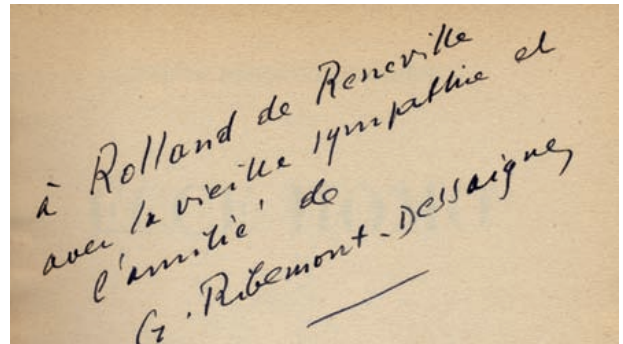 à Rolland de Reneville
avec la vieille sympathie et
l'amitié, de
G. Ribemont-Dessaignes